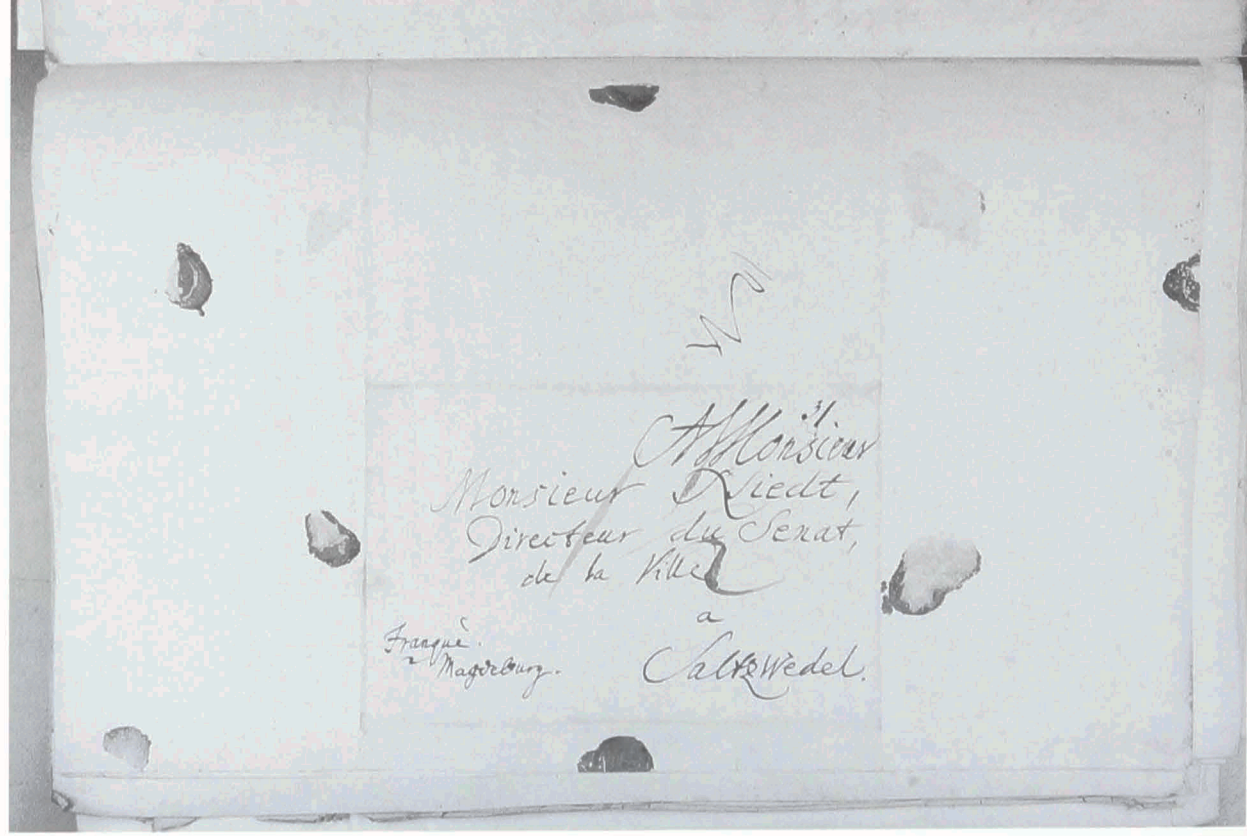 31
A Monsieur
Monsieur Riedt,
Directeur du Senat,
de la Ville
a
Saltzwedel.
Franquè.
Magdeburg.